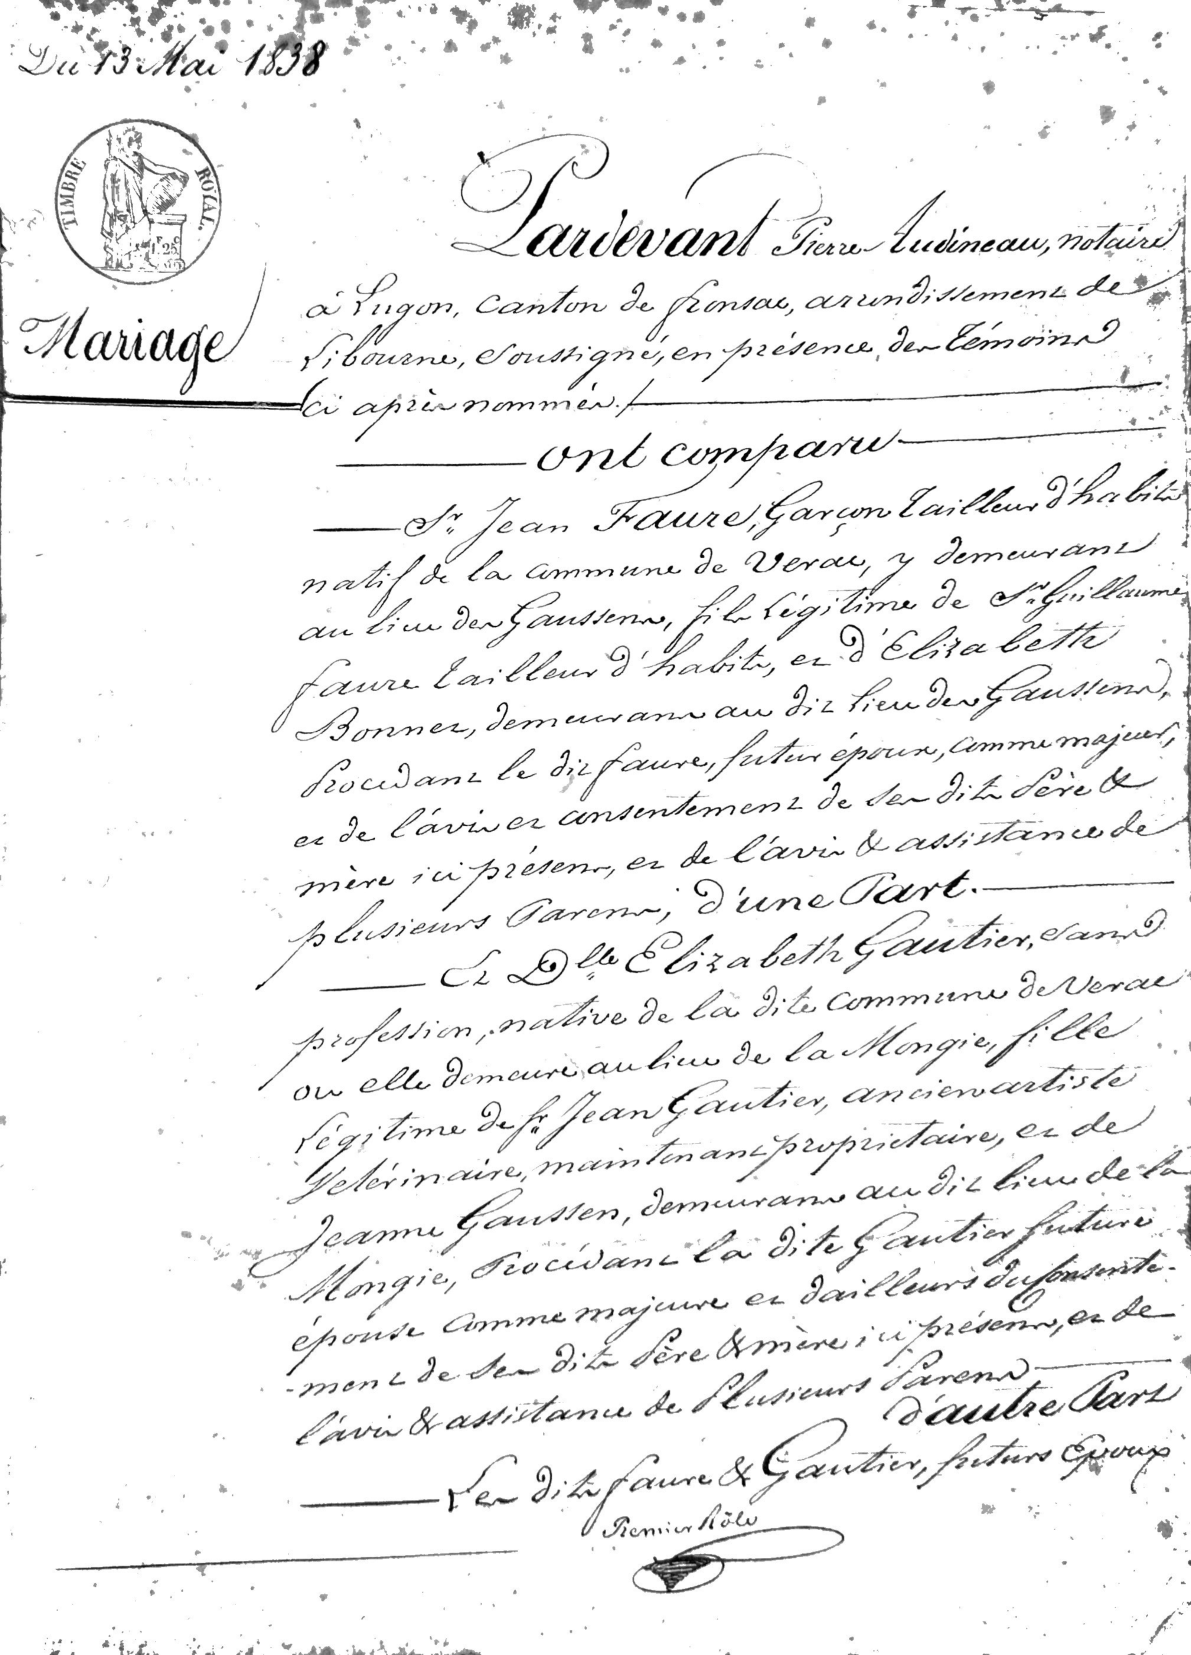 Du 13 Mai 1838
TIMBRE ROYAL
Mariage
Pardevant Pierre Audineau, notaire
à Lugon, canton de Fronsac, arrondissement de
Libourne, soussigné, en présence des témoins
ci après nommés./
ont comparu
Sr. Jean Faure, Garçon tailleur d'habits
natif de la commune de Verac, y demeurant
au lieu des Gaussens, fils légitime de Sr. Guillaume
faure tailleur d'habits, et d'Elizabeth
Bonnet, demeurans au dit lieu des Gaussens,
Procedant le dit faure, futur époux, comme majeur,
et de l'avis et consentement de ses dits Père &
mère ici présens, et de l'avis & assistance de
plusieurs Parens; d'une Part.
Et Dlle Elizabeth Gautier, sans
profession, native de la dite commune de Verac
ou elle demeure au lieu de la Mongie, fille
Légitime de Sr. Jean Gautier, ancien artiste
Vetérinaire, maintenant propriétaire, et de
Jeanne Gaussen, demeurans au dit lieu de la
Mongie, Procédant la dite Gautier future
épouse comme majeure et dailleurs du consente-
-ment de ses dits Père & mère ici présens, et de
l'avis & assistance de Plusieurs Parens
d'autre Part
Les dits faure & Gautier, futurs Epoux
Premier Rôle